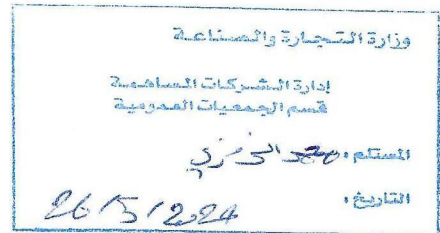 وزارة التجارة والصناعة
إدارة الشركات المساهمة
قسم الجمعيات العمومية
المستلم :
التاريخ : 26/5/2024